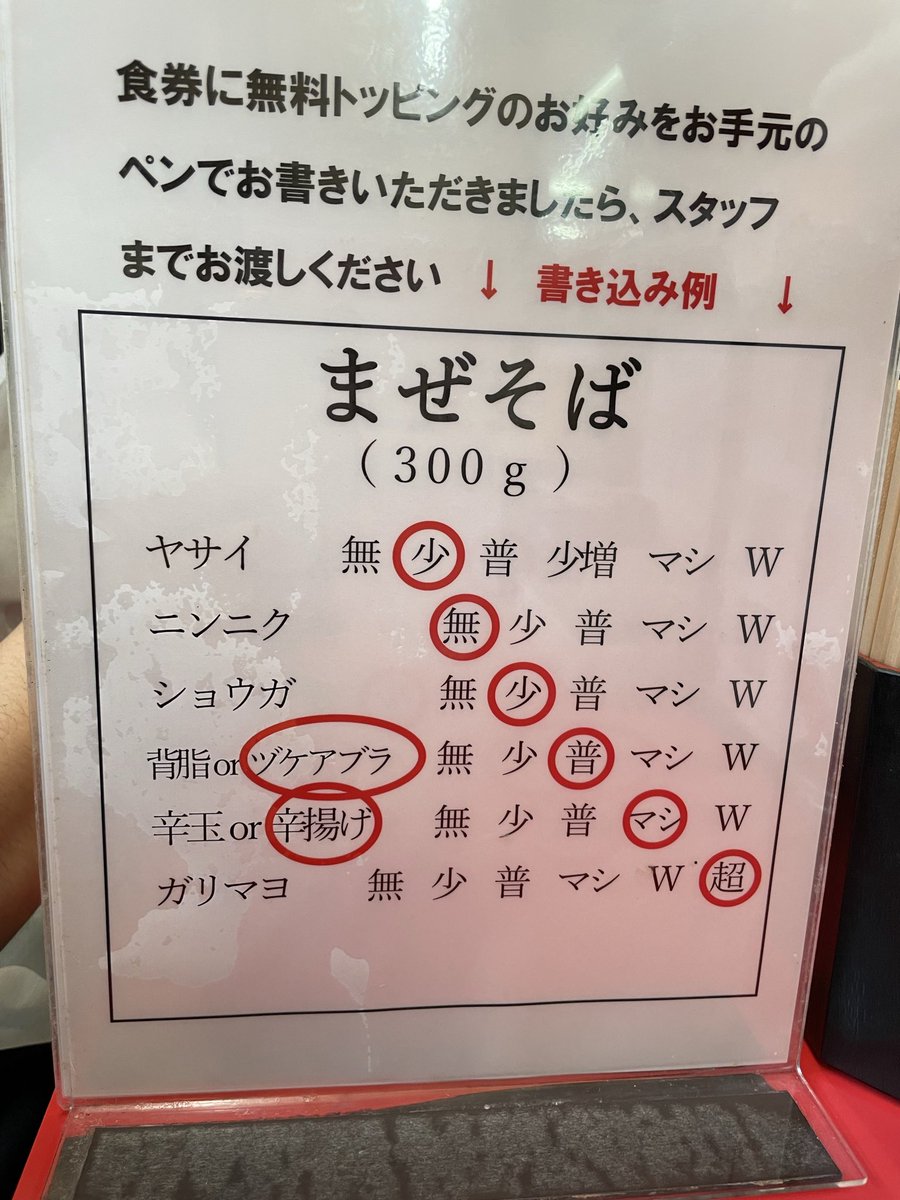 食券に無料トッピングのお好みをお手元の
ペンでお書きいただきましたら、スタッフ
までお渡しください ↓ 書き込み例 ↓
まぜそば
（300g）
ヤサイ 無 少 普 少増 マシ W
ニンニク 無 少 普 マシ W
ショウガ 無 少 普 マシ W
背脂or ヅケアブラ 無 少 普 マシ W
辛玉or 辛揚げ 無 少 普 マシ W
ガリマヨ 無 少 普 マシ W 超